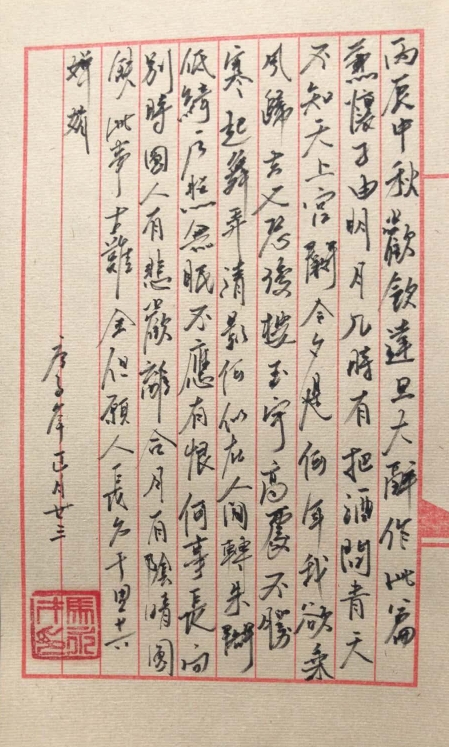 丙辰中秋歡飲達旦大醉作此篇
兼懷子由明月几時有把酒問青天
不知天上宮闕今夕是何年我欲乘
風歸去又恐瓊樓玉宇高處不勝
寒起舞弄清影何似在人間轉朱閣
低綺户照無眠不應有恨何事長向
別時圓人有悲歡離合月有陰晴圓
缺此事古難全但願人長久千里共
嬋娟
庚子年正月廿三